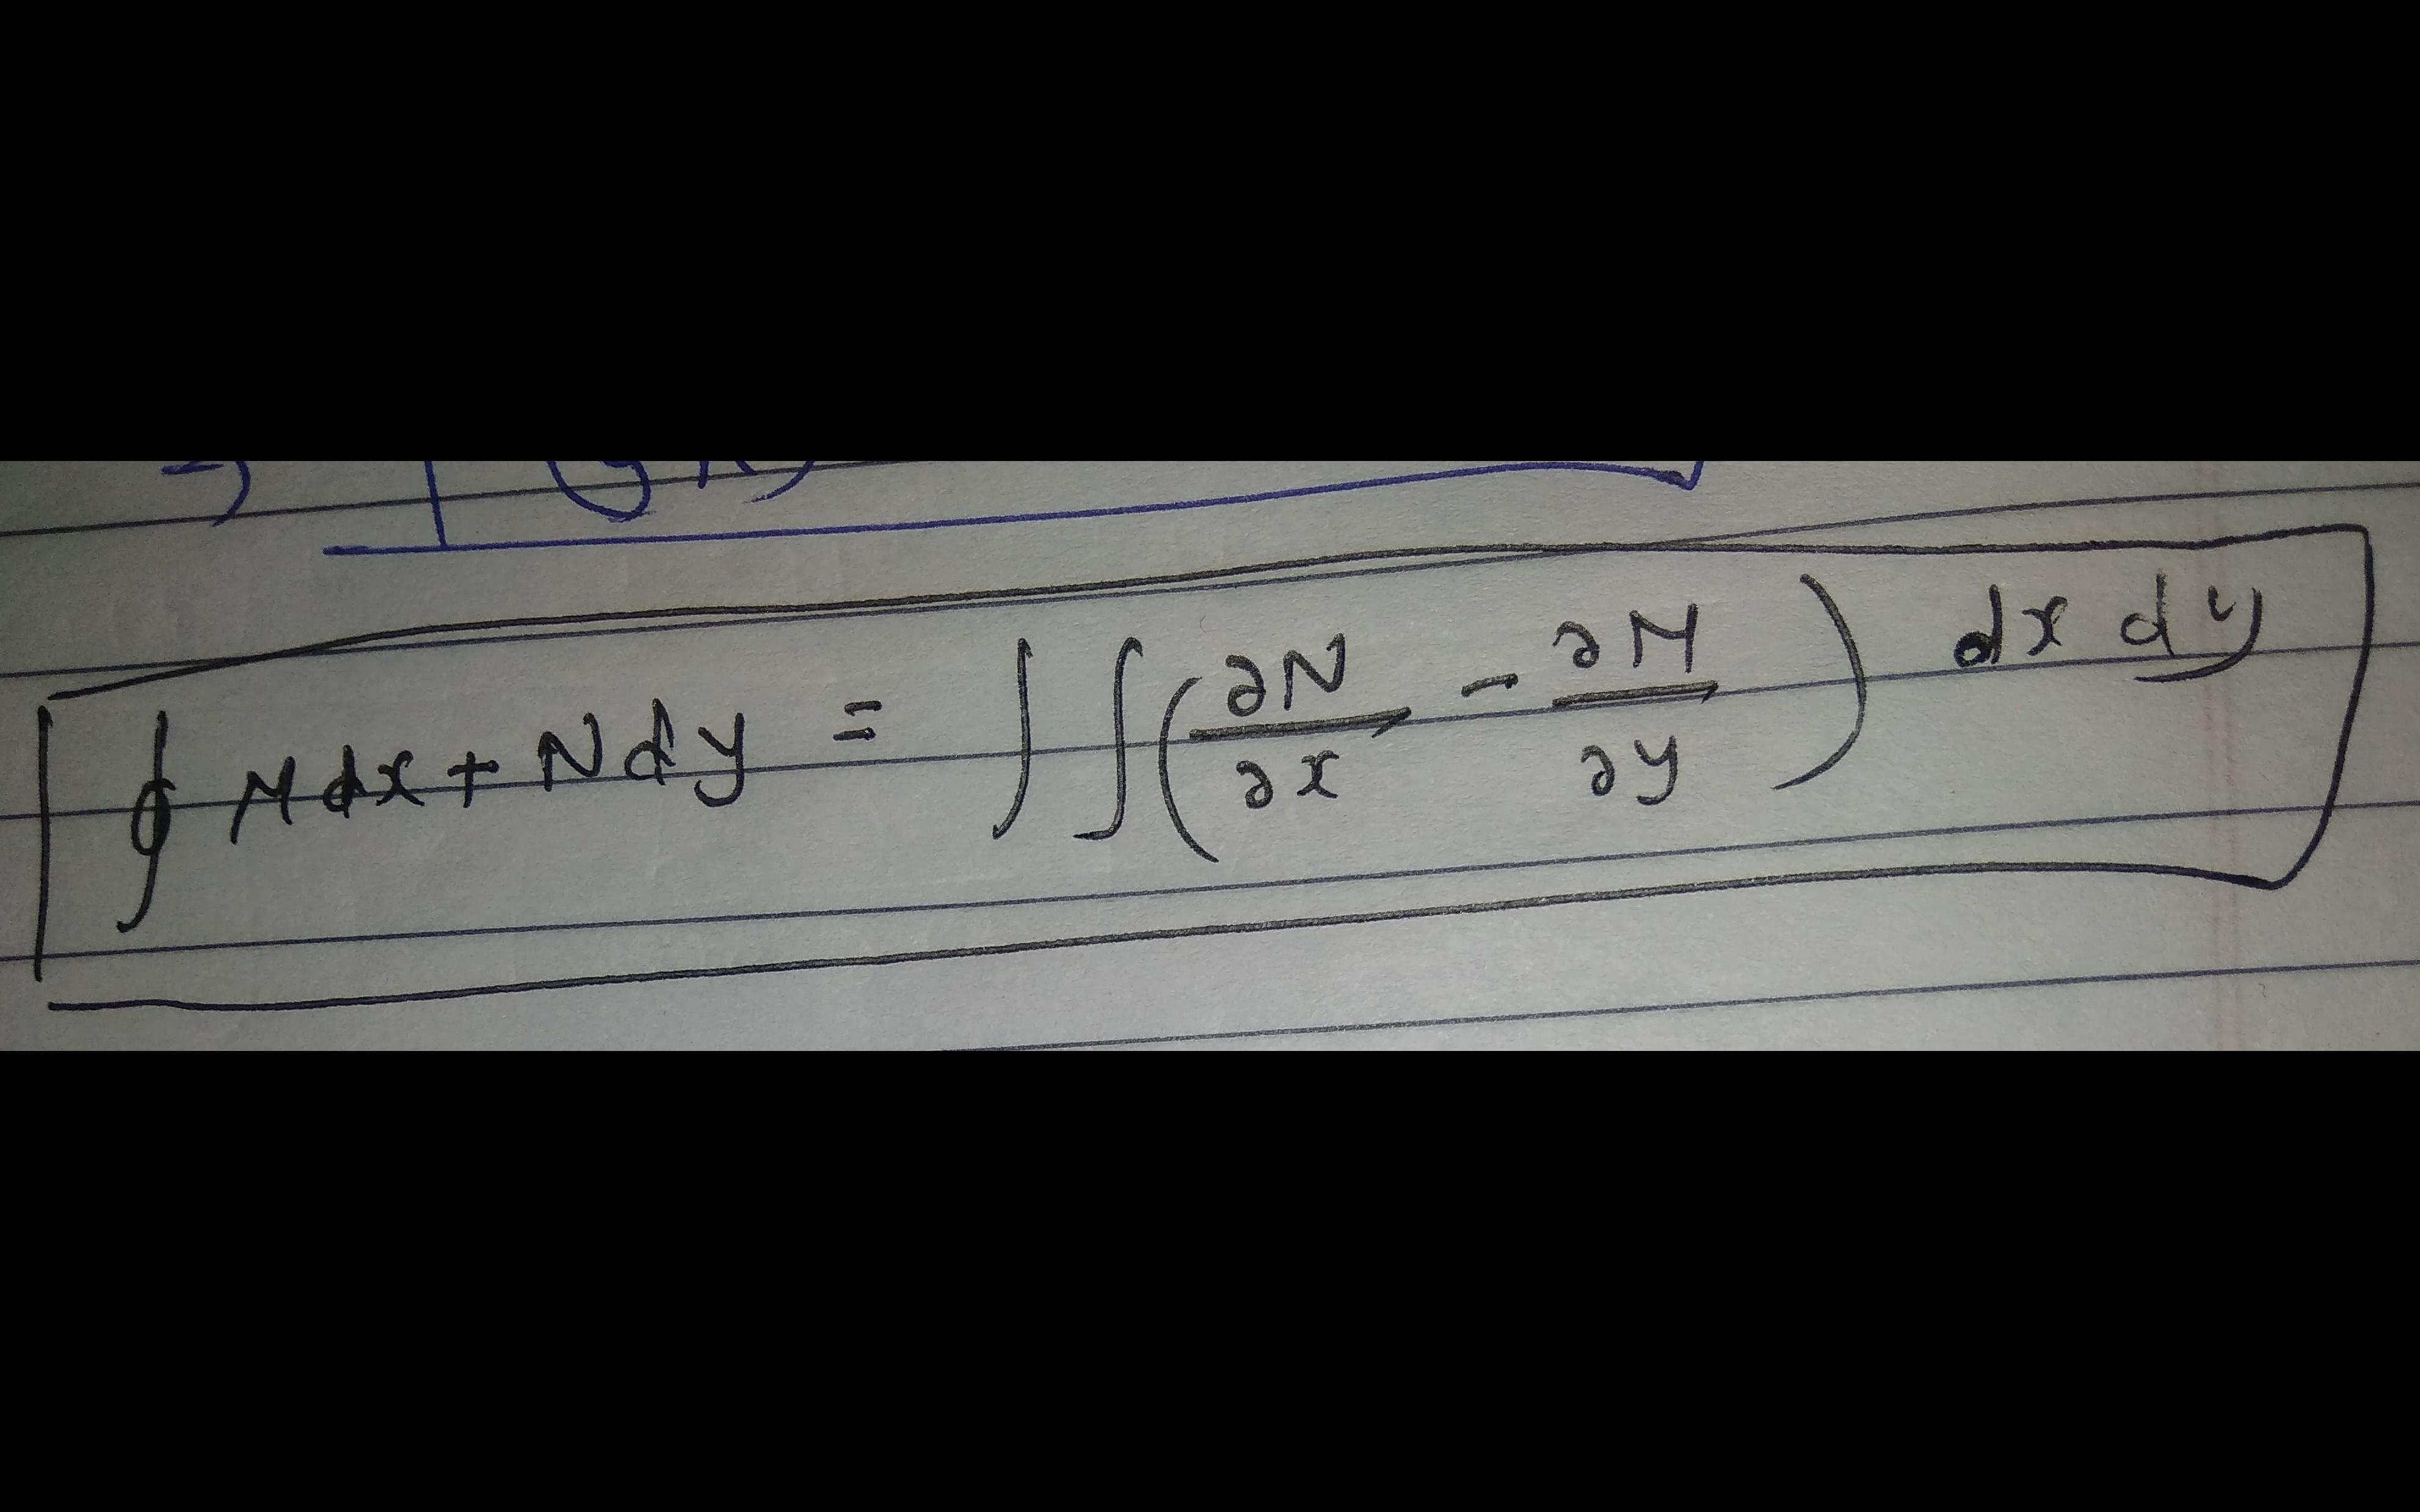 ∮ M dx + N dy = ∫∫ (∂N/∂x - ∂M/∂y) dx dy